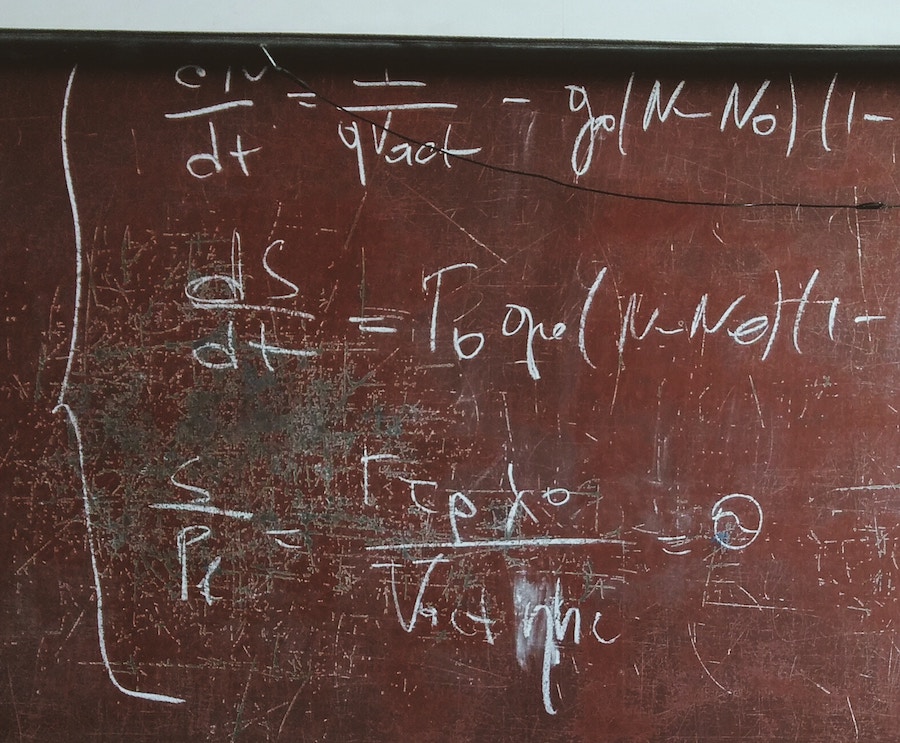 dN/dt = I/qVact - g0(N - N0)(1 -
dS/dt = Γ0 g0(N - N0)(1 -
S/Pf = Γτp λ0 / Vact ηhc =